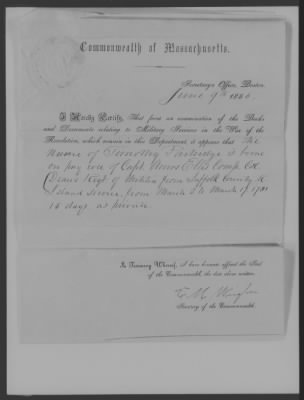 Commonwealth of Massachusetts.
Secretary's Office, Boston.
June 9th 1886.
I Hereby Certify, That from an examination of the Books
and Documents relating to Military Services in the War of the
Revolution, which remain in this Department, it appears that The
Name of Timothy Partridge is borne
on pay roll of Capt. Moses Ellis Comp. Col
Deans Regt of Militia from Suffolk County R
Island service, from March 6 to March 17. 1781
15 days as private.
In Testimony Whereof, I have hereunto affixed the Seal
of the Commonwealth, the date above written.
Secretary of the Commonwealth.